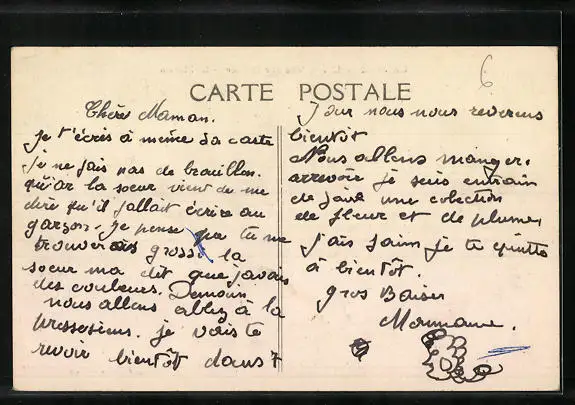 CARTE POSTALE
6
Chère Maman.
je t'écris à même la carte
je ne fais pas de brouillon.
qu'ar la soeur vient de me
dire qu'il fallait écrire au
garçon. je pense que tu me
trouveras grossi la
soeur ma dit que j'avais
des couleurs. Demain
nous allons allez à la
je vais te
revoir bientôt dans 7
Jour nous nous reverons
bientôt
Nous allons manger.
arrevoir je suis entrain
de faire une colection
de fleur et de plume,
j'ais faim je te quitte
à bientôt.
Gros Baiser